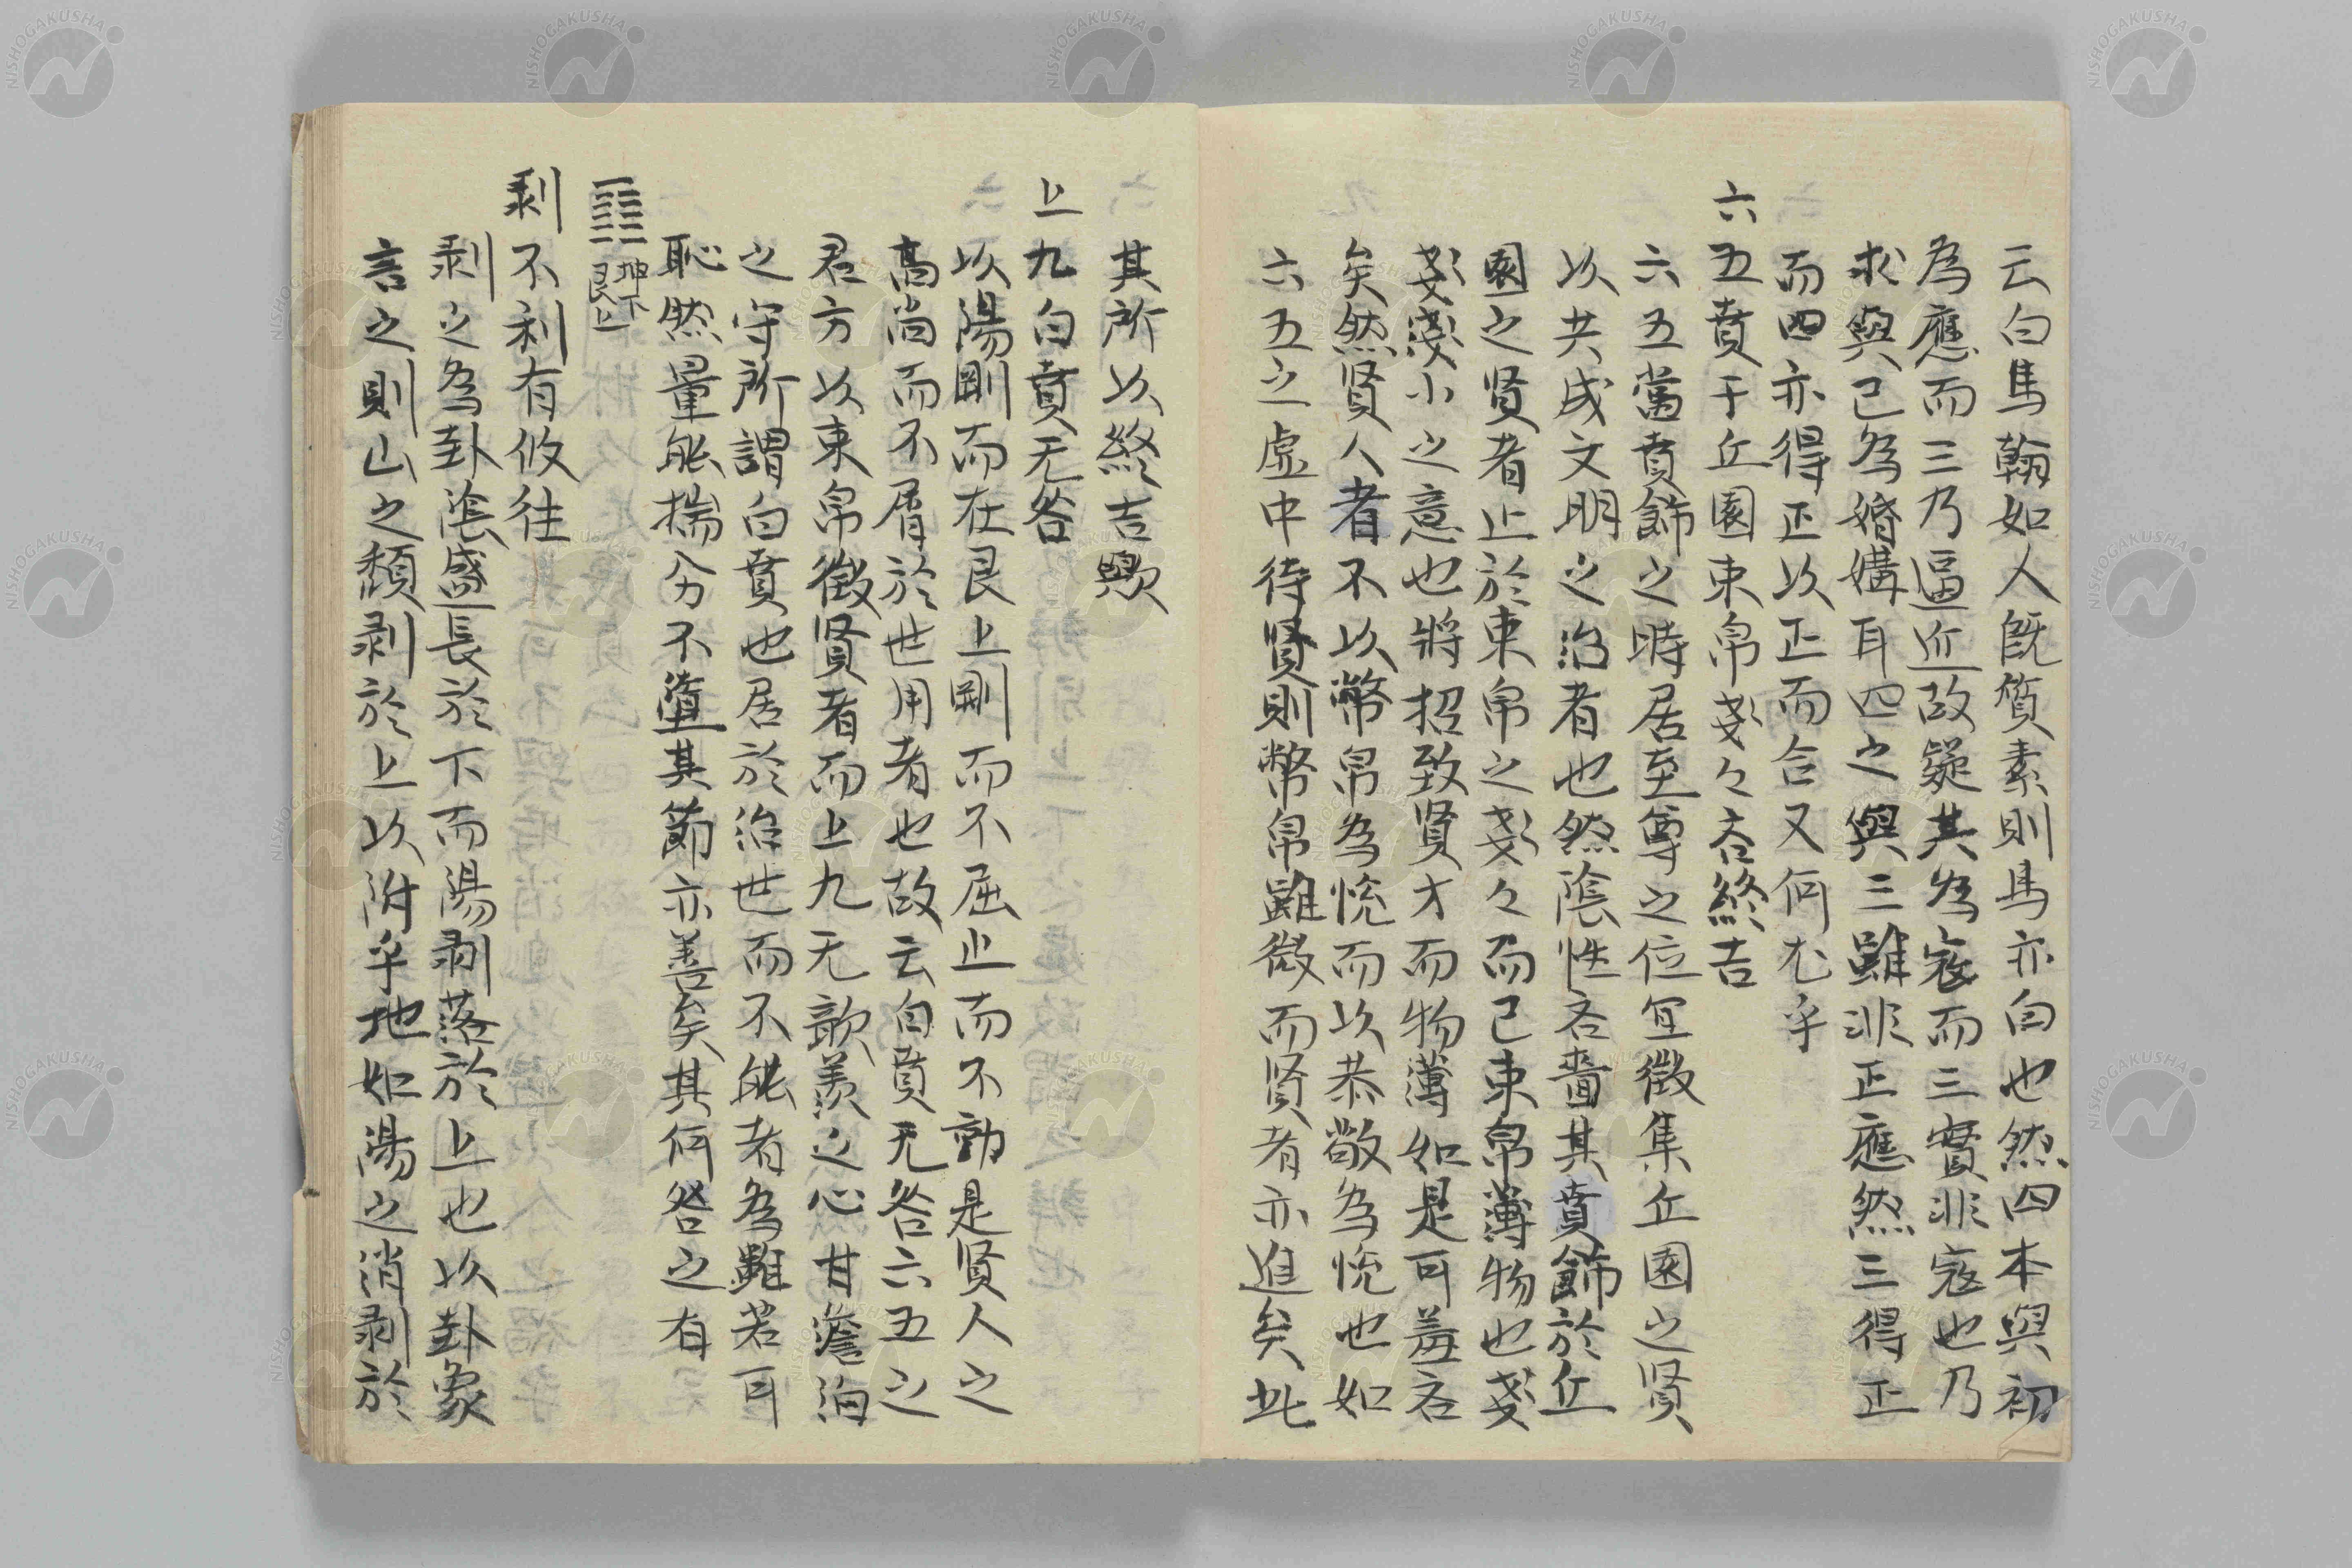 云白馬翰如人既質素則馬亦白也然四本與初
為應而三乃逼近故疑其為寇而三實非寇也乃
求與己為婚媾耳四之與三雖非正應然三得正
而四亦得正以正而合又何尤乎
六五賁于丘園束帛戔々吝終吉
六五當賁飾之時居至尊之位宜徵集丘園之賢
以共成文明之治者也然陰性吝嗇其賁飾於丘
園之賢者止於束帛之戔々而已束帛薄物也戔
戔淺小之意也將招致賢才而物薄如是可羞吝
矣然賢人者不以幣帛為悅而以恭敬為悅也如
六五之虛中待賢則幣帛雖微而賢者亦進矣此
其所以終吉歟
上九白賁无咎
以陽剛而在艮上剛而不屈止而不動是賢人之
高尚而不屑於世用者也故云白賁无咎六五之
君方以束帛徵賢者而上九无歆羨之心甘澹泊
之守所謂白賁也居於治世而不能者為雖若可
恥然量能揣分不墮其節亦善矣其何咎之有
䷖坤下艮上
剥不利有攸往
剥之為卦陰盛長於下而陽剥落於上也以卦象
言之則山之頹剥於上以附乎地如陽之消剥於
NISHOGAKUSHA